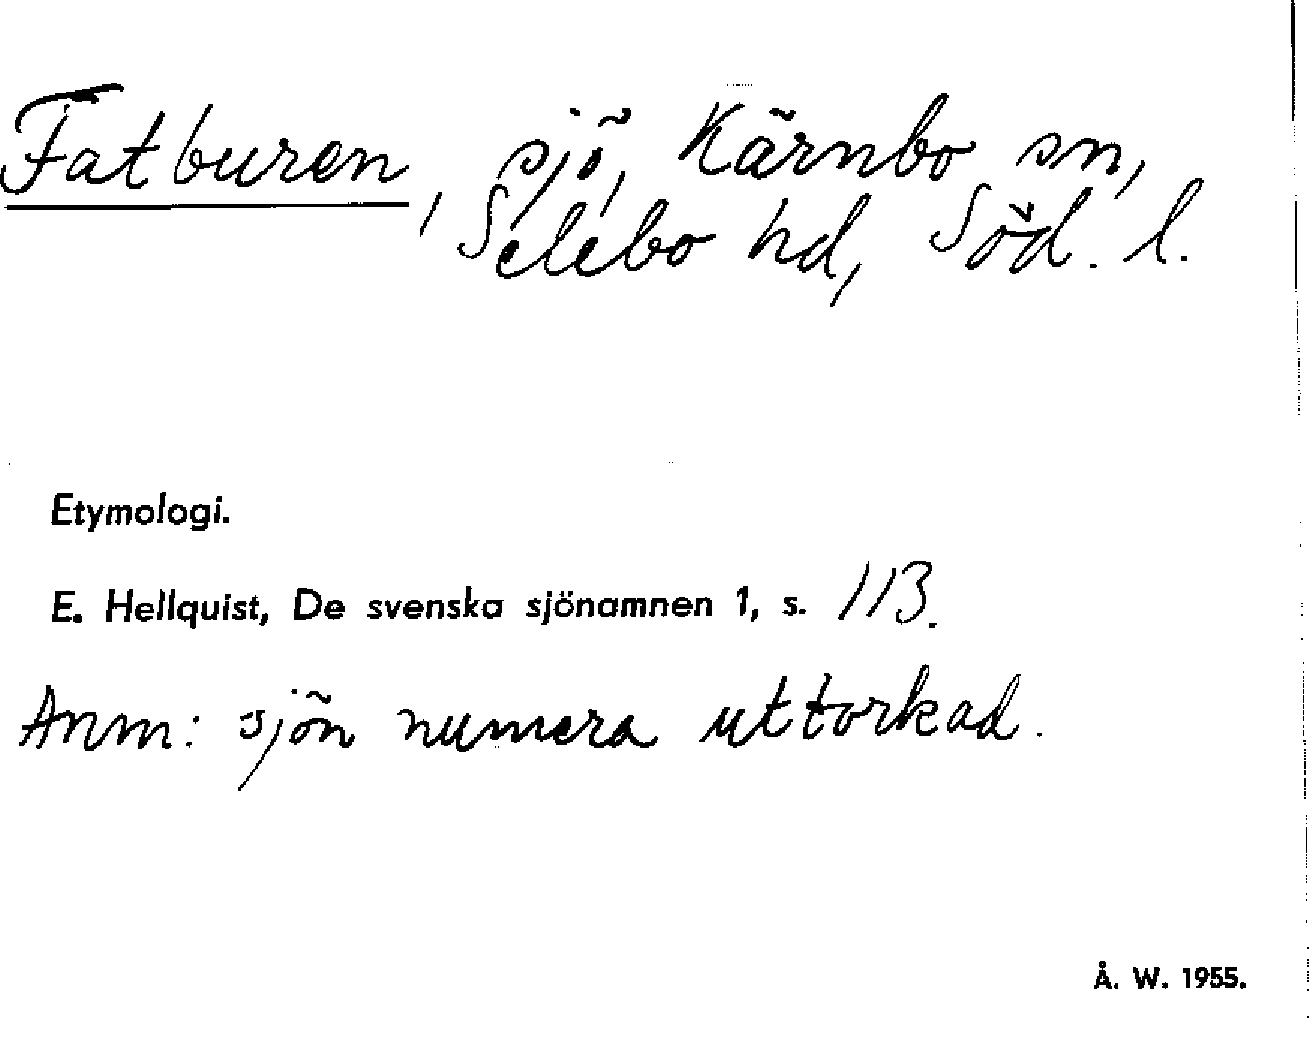 Fatburen, sjö, Kärnbo sn,
Selebo hd, Söd. l.
Etymologi.
E. Hellquist, De svenska sjönamnen 1, s. 113.
Anm: sjön numera uttorkad.
Å. W. 1955.